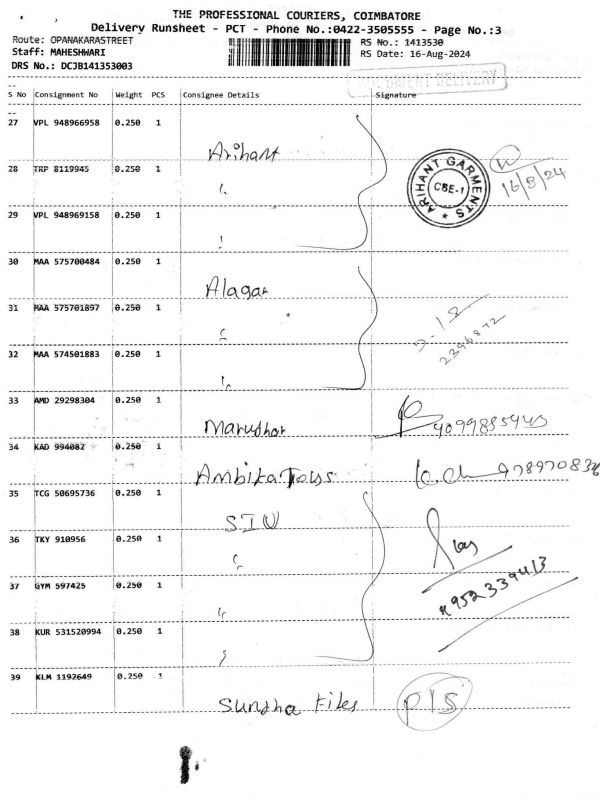 THE PROFESSIONAL COURIERS, COIMBATORE
Delivery Runsheet - PCT - Phone No.:0422-3505555 - Page No.:3
Route: OPANAKARASTREET
RS No.: 1413530
Staff: MAHESHWARI
RS Date: 16-Aug-2024
DRS No.: DCJB141353003
DELIVERY
S No Consignment No Weight PCS Consignee Details Signature
27 VPL 948966958 0.250 1
Arihant
28 TRP 8119945 0.250 1
ARIHANT GARMENTS
CBE-1
16/8/24
29 VPL 948969158 0.250 1
30 MAA 575700484 0.250 1
Alagar
31 MAA 575701897 0.250 1
2396872
32 MAA 574501883 0.250 1
33 AMD 29298304 0.250 1
Marudhar
34 KAD 994082 0.250 1
Ambika Toys
35 TCG 50695736 0.250 1
SIU
36 TKY 910956 0.250 1
37 GYM 597425 0.250 1
38 KUR 531520994 0.250 1
39 KLM 1192649 0.250 1
Sundha Files